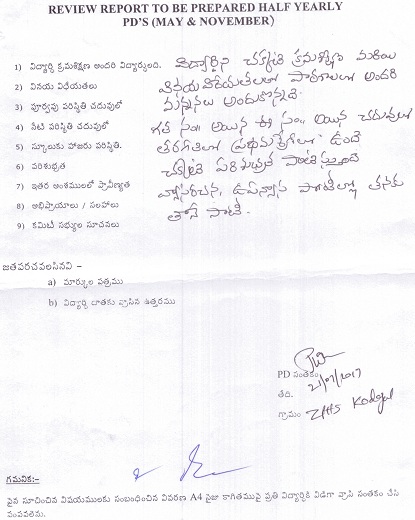 REVIEW REPORT TO BE PREPARED HALF YEARLY
PD'S (MAY & NOVEMBER)
1) విద్యార్థి క్రమశిక్షణ అందరి విద్యార్థులది.
విద్యార్థిని చక్కటి క్రమశిక్షణ మరియు
2) వినయ విధేయతలు
వినయ విధేయతలతో పాఠశాలలో అందరి
మన్ననలు అందుకొన్నది.
3) పూర్వపు పరిస్థితి చదువులో
4) నేటి పరిస్థితి చదువులో
గత సం|| అయిన ఈ సం|| అయిన చదువులో
5) స్కూలుకు హాజరు పరిస్థితి.
తరగతిలో ప్రథమశ్రేణిలో ఉంది
6) పరిశుభ్రత
చక్కటి పరిశుభ్రత పాటిస్తుంది
7) ఇతర అంశములలో ప్రావీణ్యత
వ్యాసరచన, ఉపన్యాస పోటీల్లో తనకు
8) అభిప్రాయాలు / సలహాలు
తానే సాటి.
9) కమిటీ సభ్యుల సూచనలు
జతపరచవలసినవి –
a) మార్కుల పత్రము
b) విద్యార్థి దాతకు వ్రాసిన ఉత్తరము
PD సంతకం
తేది. 21/07/2017
గ్రామం ZPHS Kodgal
గమనిక:-
పైన సూచించిన విషయములకు సంబంధించిన వివరణ A4 సైజు కాగితముపై ప్రతి విద్యార్థికి విడిగా వ్రాసి సంతకం చేసి
పంపవలెను.